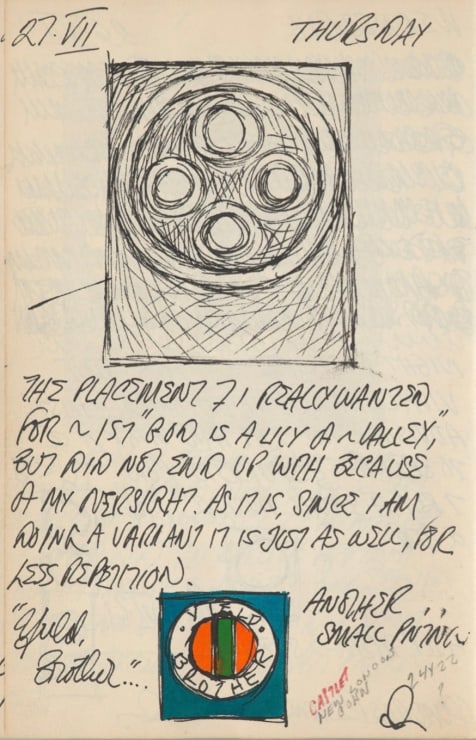 27·VII THURSDAY
THE PLACEMENT I REALLY WANTED
FOR ~ 1ST "GOD IS A LILY OF ~ VALLEY,"
BUT DID NOT END UP WITH BECAUSE
OF MY OVERSIGHT. AS IT IS, SINCE I AM
DOING A VARIANT IT IS JUST AS WELL, FOR
LESS REPETITION.
"Yield,
Brother"....
YIELD·
BROTHER
ANOTHER
SMALL
NEW LONDON
JOHN
24 X 22
?